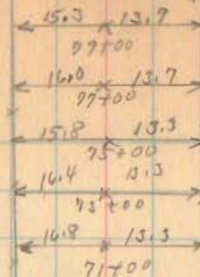 15.3 13.9
79+00
16.0 13.7
77+00
15.8 13.3
75+00
16.4 13.3
73+00
16.8 13.3
71+00